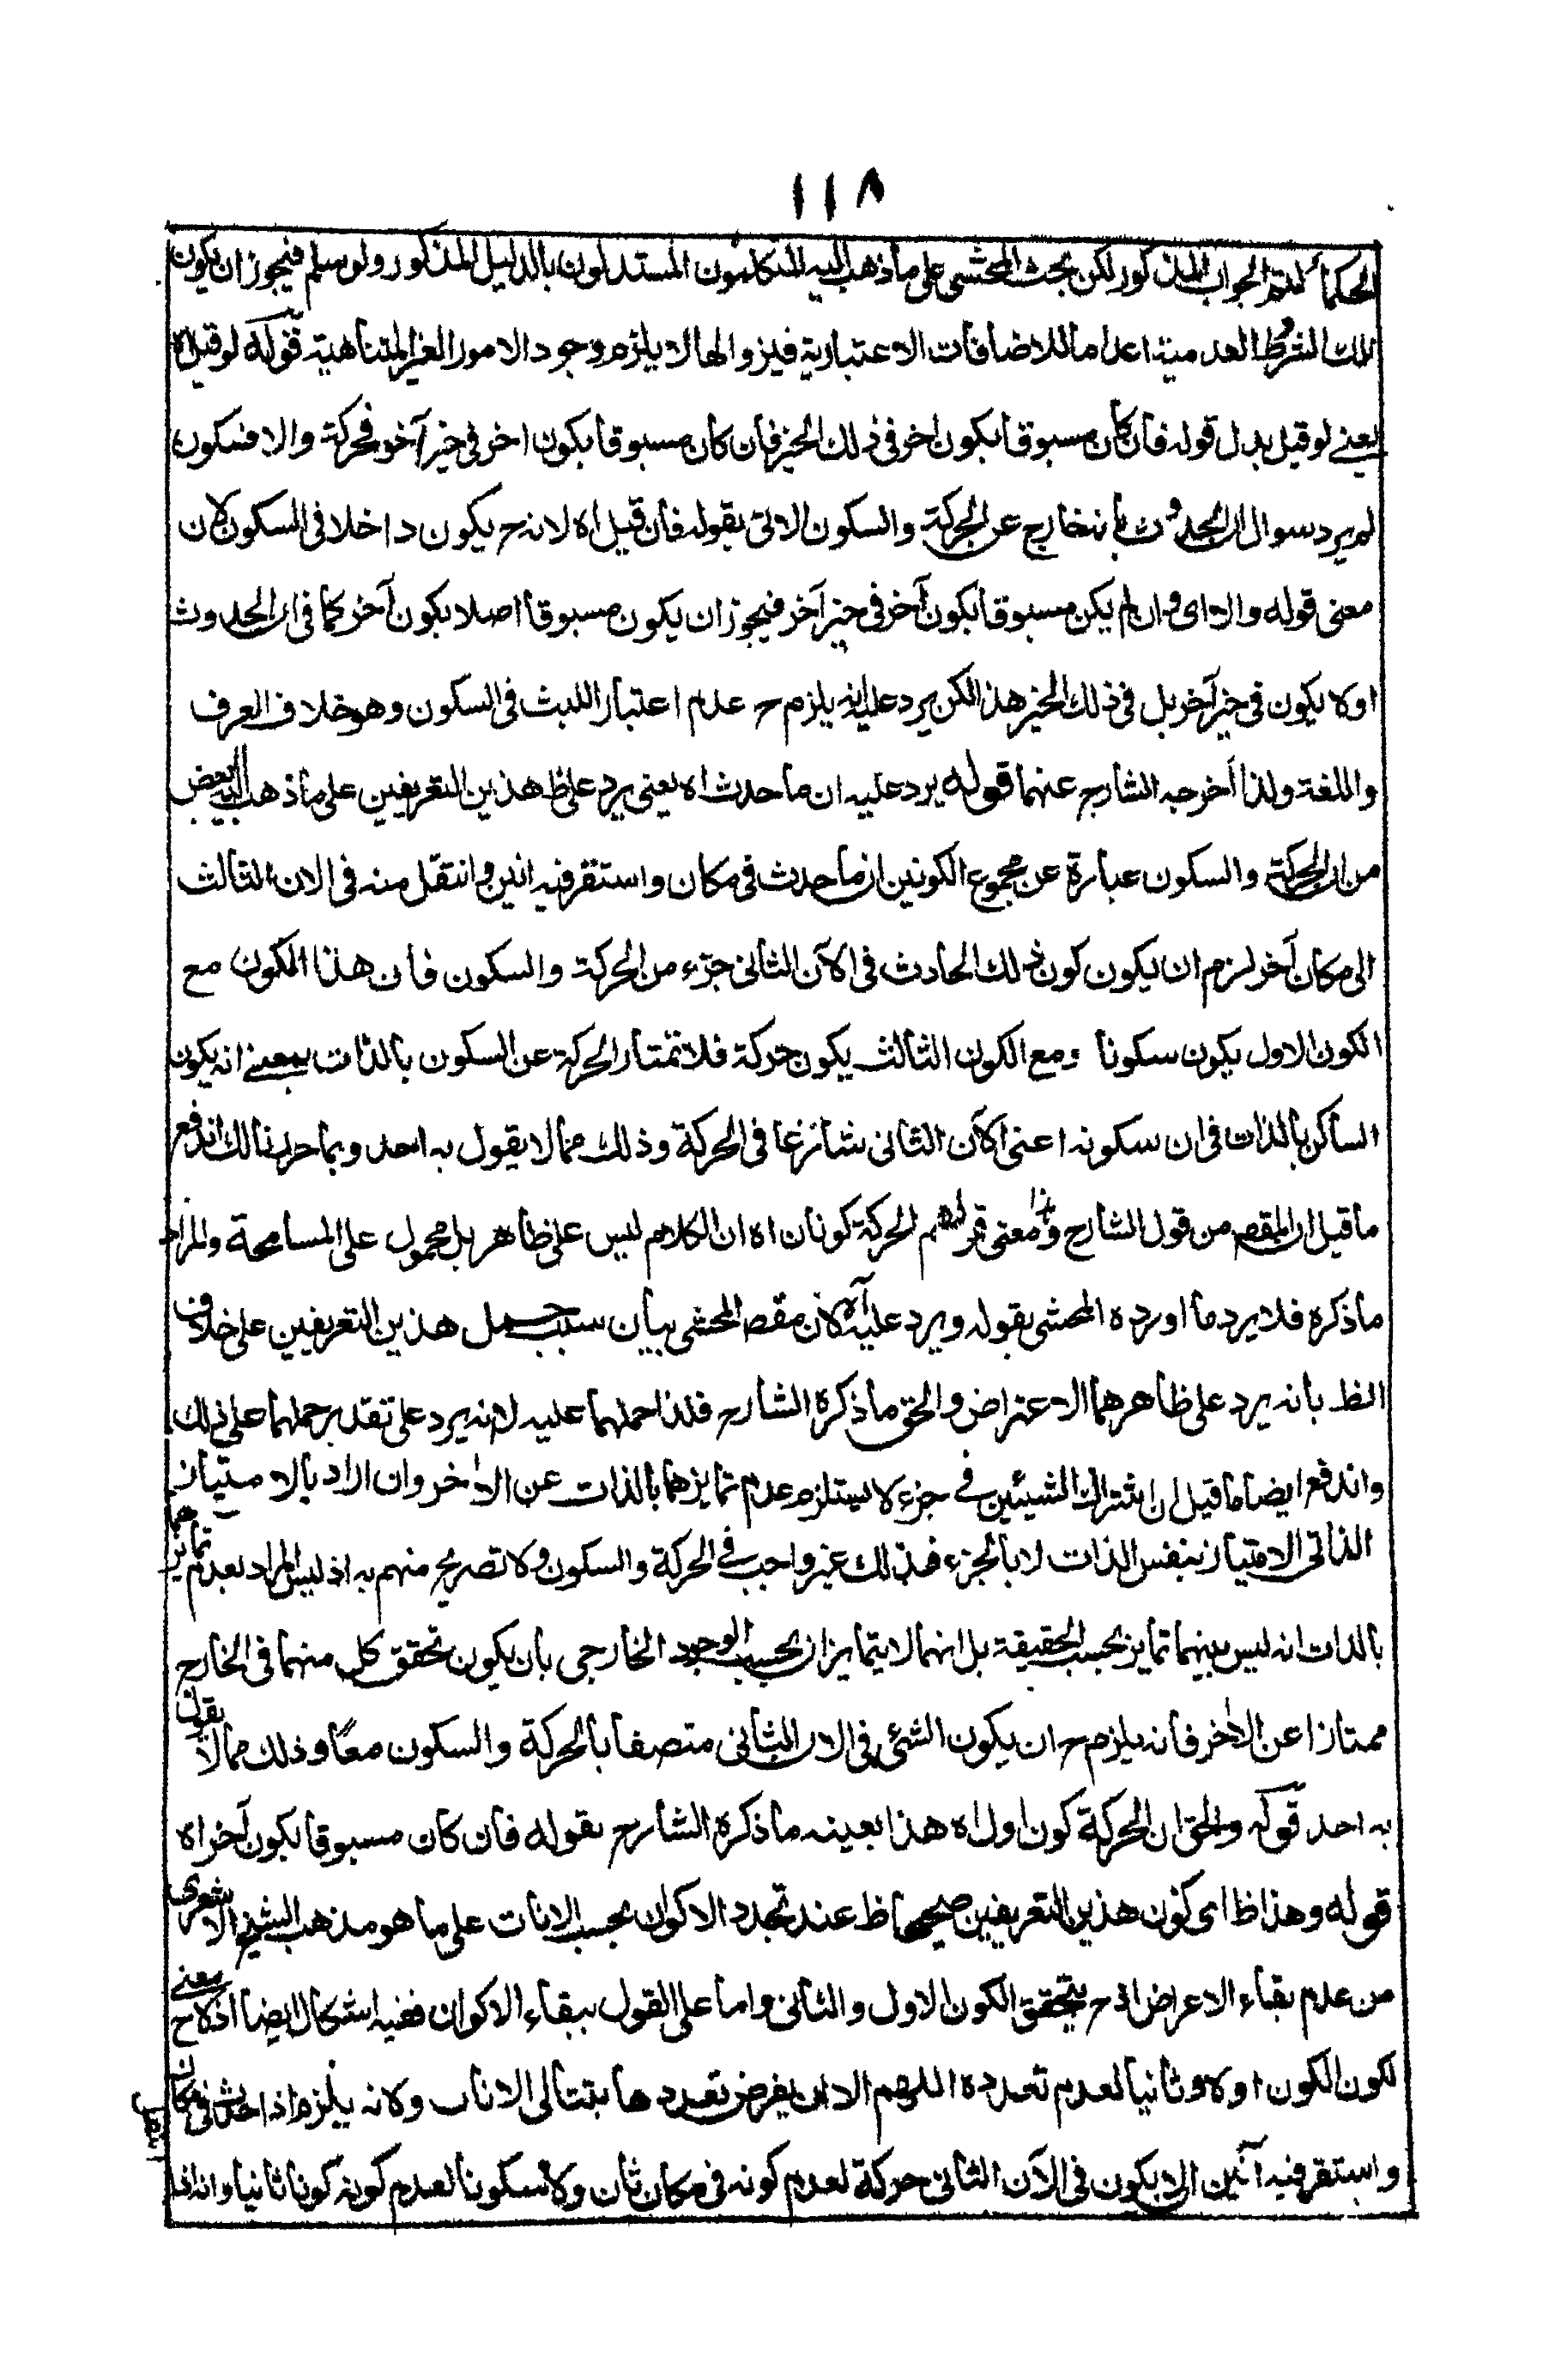 ١١٨
الحكماء لتم الجواب المذكور لكن بحث المحشي على ما ذهب اليه المتكلمون المستدلون بالدليل المذكور ولو سلم فيجوز ان يكون
تلك الشروط العدمية اعداما للاضافات الاعتبارية فبزوالها لا يلزم وجود الامور الغير المتناهية قوله لو قيل اه
يعني لو قيل بدل قوله فان كان مسبوقا بكون اخر في ذلك الحيز فان كان مسبوقا بكون اخر في حيز آخر فحركة والا فسكون
لم يرد سوال ان الحدوث بانه خارج عن الحركة والسكون الاتي بقوله فان قيل اه لانه ح يكون داخلا في السكون لان
معنى قوله والا اي وان لم يكن مسبوقا بكون آخر في حيز آخر فيجوز ان يكون مسبوقا اصلا بكون آخر كما في ان الحدوث
اولا يكون في حيز آخر بل في ذلك الحيز هذا لكن يرد عليه انه يلزم ح عدم اعتبار اللبث في السكون وهو خلاف العرف
واللغة ولذا اخرجه الشارح عنهما قوله يرد عليه ان ما حدث اه يعني يرد على ظ هذين التعريفين على ما ذهب اليه البعض
من ان الحركة والسكون عبارة عن مجموع الكونين ان ما حدث في مكان واستقر فيه انين وانتقل منه في الان الثالث
الى مكان آخر لزم ان يكون كون ذلك الحادث في الآن الثاني جزء من الحركة والسكون فان هذا الكون مع
الكون الاول يكون سكونا ومع الكون الثالث يكون حركة فلا تمتاز الحركة عن السكون بالذات بمعنى انه يكون
الساكن بالذات في ان سكونه اعني الآن الثاني شارعا في الحركة وذلك مما لا يقول به احد وبما حررنا لك اندفع
ما قيل ان المقصم من قول الشارح وهذا معنى قولهم الحركة كونان اه ان الكلام ليس على ظاهره بل محمول على المسامحة والمراد
ما ذكره فلا يرد ما اورده المحشي بقوله ويرد عليه آه لان مقص المحشي بيان سبب حمل هذين التعريفين على خلاف
الظ بانه يرد على ظاهرهما الاعتراض والحق ما ذكره الشارح فلذا حملهما عليه لا انه يرد على تقدير حملهما على ذلك
واندفع ايضا ما قيل ان اشتراك الشيئين في جزء لا يستلزم عدم تمايزهما بالذات عن الاخر وان اراد بالامتياز
الذاتي الامتياز بنفس الذات لا بالجزء فذلك غير واجب في الحركة والسكون ولا تصريح منهم به اذ ليس المراد بعدم تمايزهما
بالذات انه ليس بينهما تمايز بحسب الحقيقة بل انهما لا يتمايزان بحسب الوجود الخارجي بان يكون تحقق كل منهما في الخارج
ممتازا عن الاخر فانه يلزم ح ان يكون الشئ في الان الثاني متصفا بالحركة والسكون معًا وذلك مما لا يقول
به احد قوله والحق ان الحركة كون اول اه هذا بعينه ما ذكره الشارح بقوله فان كان مسبوقا بكون آخر اه
قوله وهذا ظ اي كون هذين التعريفين صحيحا ظ عند تجدد الاكوان بحسب الانات على ما هو مذهب الشيخ الاشعري
من عدم بقاء الاعراض اذ ح يتحقق الكون الاول والثاني واما على القول ببقاء الاكوان ففيه اشكال ايضا اذ لا معنى ح
لكون الكون اولا وثانيا لعدم تعدده اللهم الا ان يفرض تعددها بتتالي الانات ولانه يلزم اذا حدث في مكان
واستقر فيه آنين ان لا يكون في الآن الثاني حركة لعدم كونه في مكان ثان ولا سكونا لعدم كونه كونا ثانيا واذا